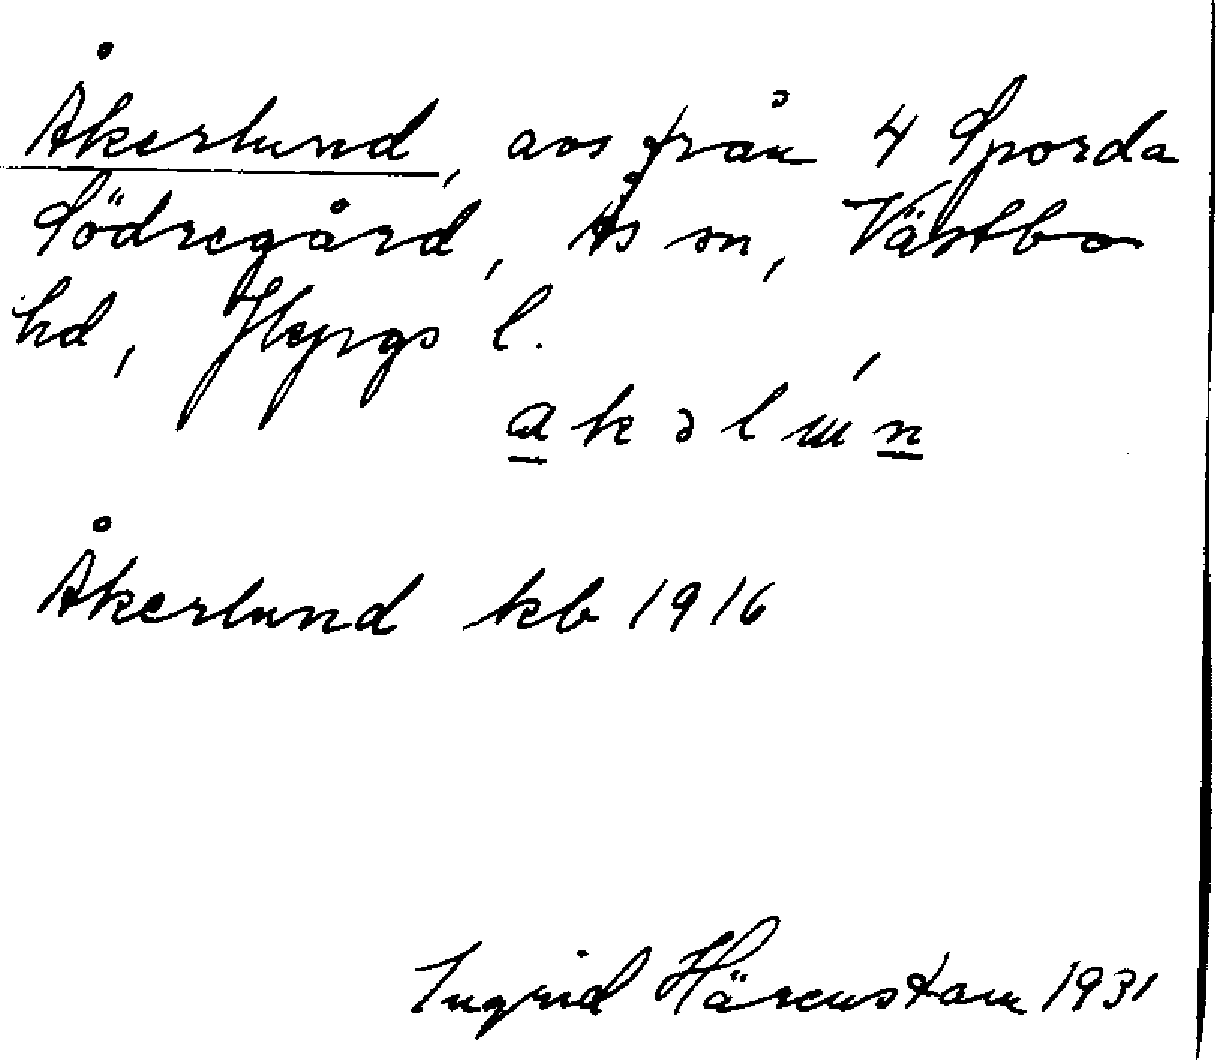 Åkerlund, avs från 4 Sporda
Södregård, Ås sn, Västbo
hd, Jkpgs l.
akəlɯ́n
Åkerlund kb 1916
Ingrid Härenstam 1931